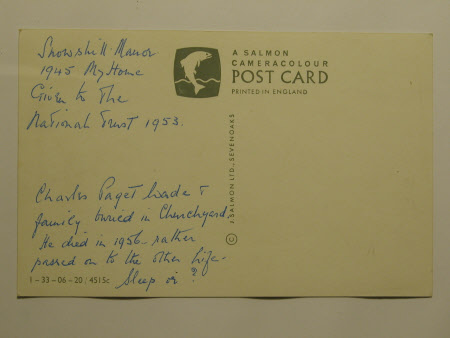 Snowshill Manor
1945 My Home
Given to The
National Trust 1953.
Charles Paget Wade &
family buried in Churchyard.
He died in 1956 rather
passed on to the other Life-
Sleep is ?
1-33-06-20/4515c
A SALMON
CAMERACOLOUR
POST CARD
PRINTED IN ENGLAND
© J. SALMON LTD., SEVENOAKS